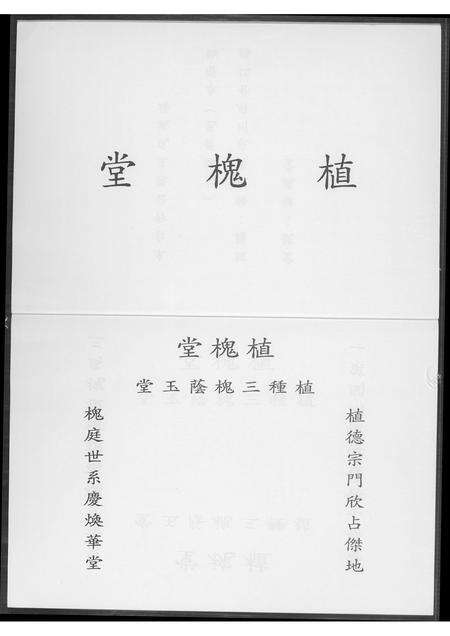 植槐堂
植槐堂
植種三槐蔭玉堂
植德宗門欣占傑地
槐庭世系慶煥華堂